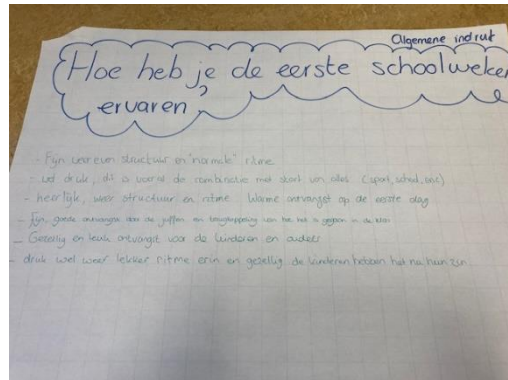 Algemene indruk
Hoe heb je de eerste schoolweken
ervaren?
- Fijn weer even structuur en "normale" ritme
- wel druk, dit is vooral de combinatie met start van alles (sport, school, enz)
- heerlijk, weer structuur en ritme Warme ontvangst op de eerste dag
- Fijn, goede ontvangst door de juffen en terugkoppeling van hoe het is gegaan in de klas
- Gezellig en leuk ontvangst voor de kinderen en ouders
- druk wel weer lekker ritme erin en gezellig de kinderen hebben het na hun zin